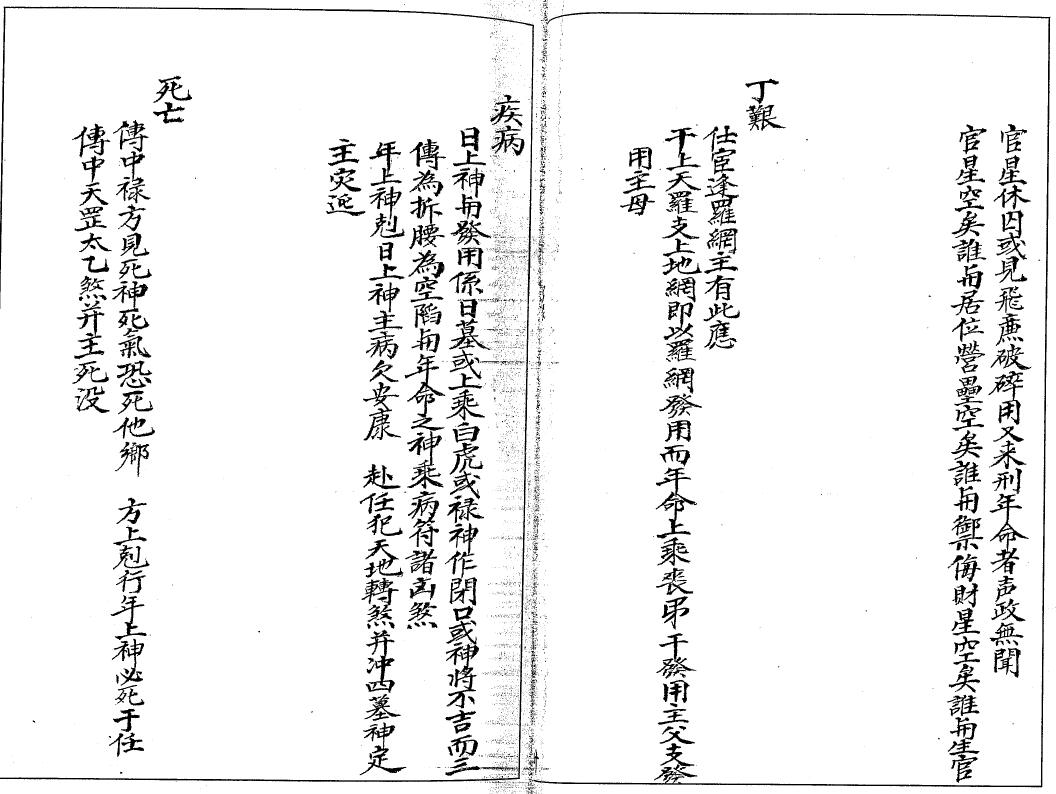 官星休囚或見飛廉破碎用又来刑年命者声政無聞
官星空矣誰與居位營壘空矣誰與禦侮財星空矣誰與生官
丁艱
仕宦逢羅網主有此應
干上天羅支上地網即以羅網發用而年命上乘丧弔干發用主父支發
用主母
疾病
日上神與發用係日墓或上乘白虎或禄神作閉口或神將不吉而三
傳為折腰為空陷與年命之神乘病符諸凶煞
年上神剋日上神主病欠安康 赴任犯天地轉煞并冲四墓神定
主灾迍
死亡
傳中禄方見死神死氣恐死他鄉 方上剋行年上神必死于任
傳中天罡太乙煞并主死没